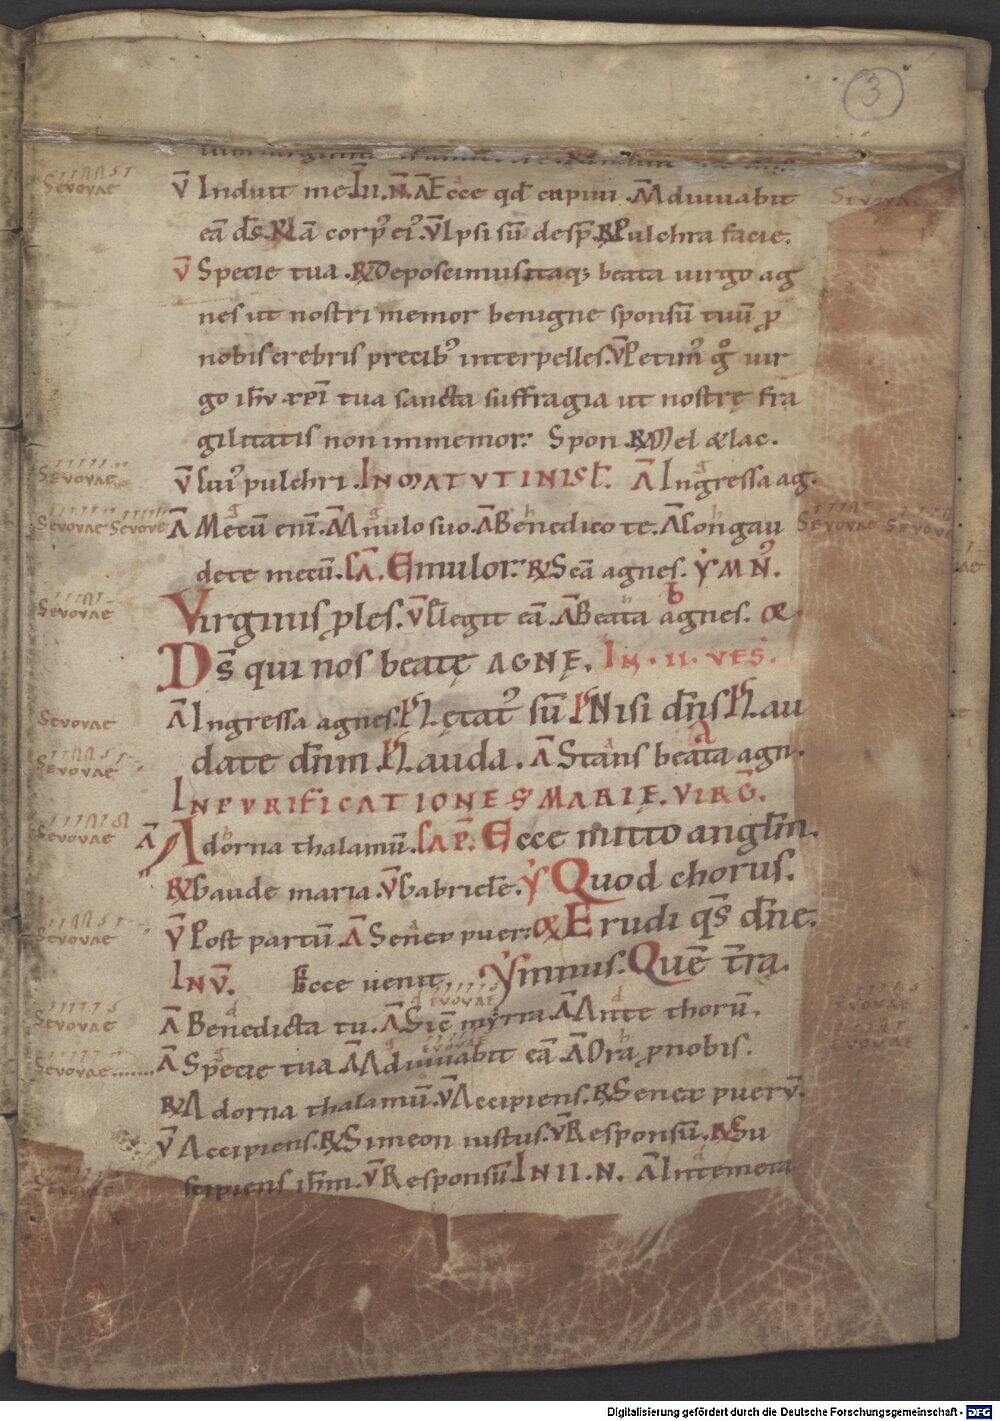 3
V̄ Induit me. In .II. N̄. Ā Ecce qd̄ cupiui. Ā Adiuuabit
eā ds̄. R̄ Iā corp᷒ ei᷒. V̄ Ipsi sū desp̄. R̄ Pulchra facie.
V̄ Specie tua. R̄ Deposcimus itaq; beata uirgo ag
nes ut nostri memor benigne sponsū tuū ꝓ
nobis crebris precib᷒ interpelles. V̄ Petim᷒ g̊ uir
go ih̄u xp̄i tua sancta suffragia ut nostrę fra
gilitatis non inmemor. Spon. R̄ Mel & lac.
Sevovae V̄ Cui᷒ pulchri. IN MATUTINIS L̄. Ā Ingressa ag.
Sevovae Sevove Ā Mecū enī. Ā Anulo suo. Ā Benedico te. Ā Congau Sevovae Sevov
dete mecū. CĀ. Emulor. R̄ Scā agnes. YMN᷒.
Sevovae Virginis ꝓles. V̄ Elegit eā. Ā Beata agnes. &
Ds̄ qui nos beatę AGNĘ. IN. II. VES̄.
Sevovae Ā Ingressa agnes. Ps̄ Lętat᷒ sū Ps̄ Nisi dn̄s Ps̄ Lau
Sevovae date dn̄m Ps̄ Lauda. Ā Stans beata agn.
IN PURIFICATIONE S̄ MARIĘ. VIRḠ.
Sevovae Ā Adorna thalamū. CAP̄. Ecce mitto anglm̄.
R̄ Gaude maria. V̄ Gabriele. Y Quod chorus.
Sevovae V̄ Post partū. Ā Senex puer. & Erudi qs̄ dn̄e.
INV̄. Ecce uenit. Ymnus. Quē tr̄a.
Sevovae Ā Benedicta tu. Ā Sic̄ myrra. Ā Ante thorū.
Sevovae Ā Specie tua Ā Adiuuabit eā. Ā Ora ꝓ nobis.
R̄ Adorna thalamū. V̄ Accipiens. R̄ Senex puerū.
V̄ Accipiens. R̄ Simeon iustus. V̄ Responsū. R̄ Su
Sevovae scipiens ih̄m. V̄ Responsū. IN II. N. Ā Intemera
Digitalisierung gefördert durch die Deutsche Forschungsgemeinschaft - DFG